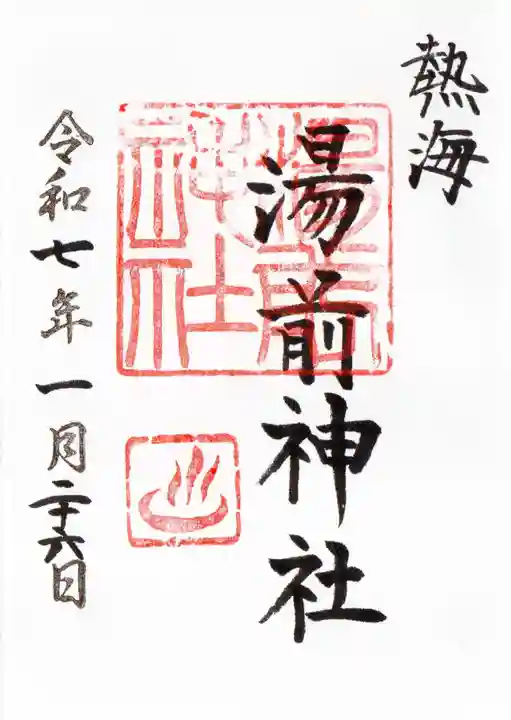 熱海
湯前神社
湯前神社
令和七年一月二十六日